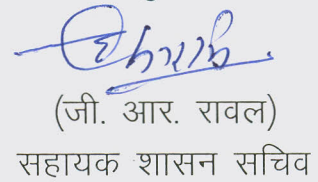 (जी. आर. रावल)
सहायक शासन सचिव